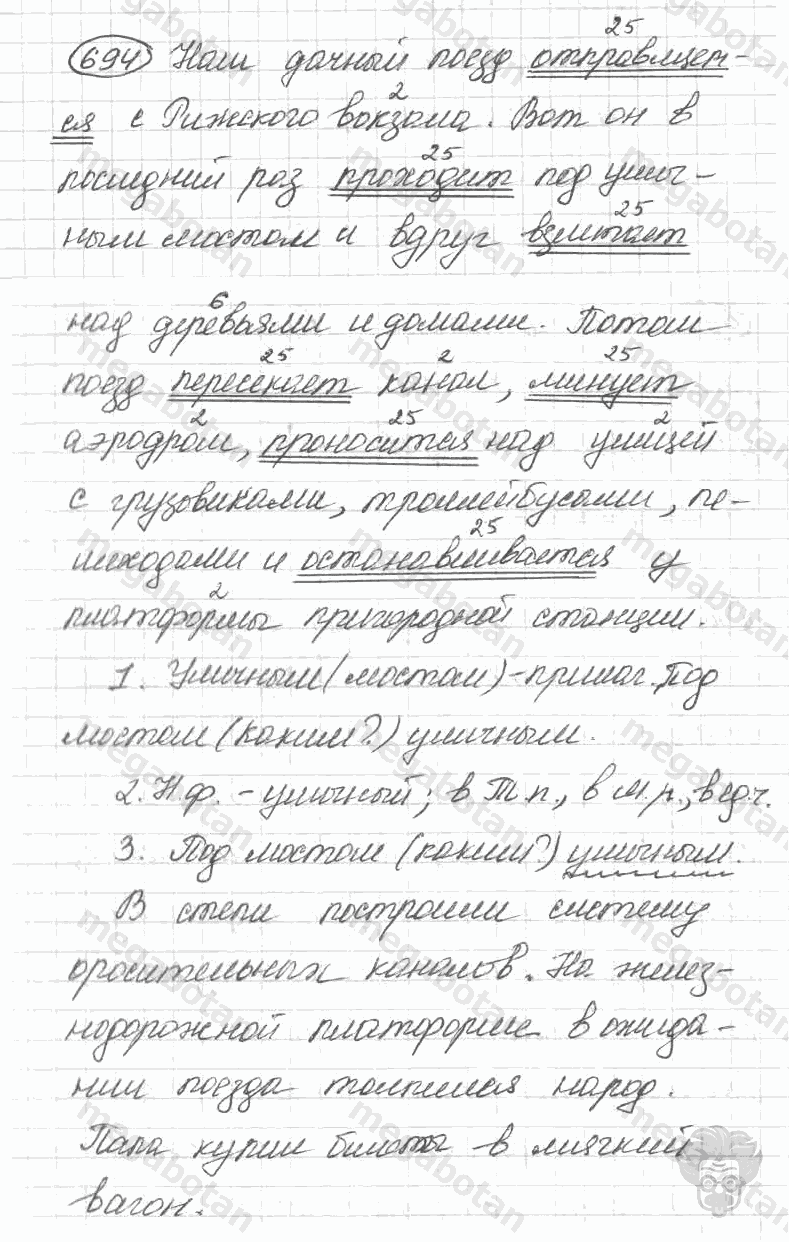 694 Наш дачный поезд отправляет-
ся с Рижского вокзала. Вот он в
последний раз проходит под улич-
ным мостом и вдруг взлетает
над деревьями и домами. Потом
поезд пересекает канал, минует
аэродром, проносится над улицей
с грузовиками, троллейбусами, пе-
шеходами и останавливается у
платформы пригородной станции.
1. Уличным (мостом) - прилаг. Под
мостом (каким?) уличным.
2. Н.ф. - уличный; в Т.п., в м.р., в ед.ч.
3. Под мостом (каким?) уличным.
В степи построили систему
оросительных каналов. На желез-
нодорожной платформе в ожида-
нии поезда толпился народ.
Папа купил билеты в мягкий
вагон.